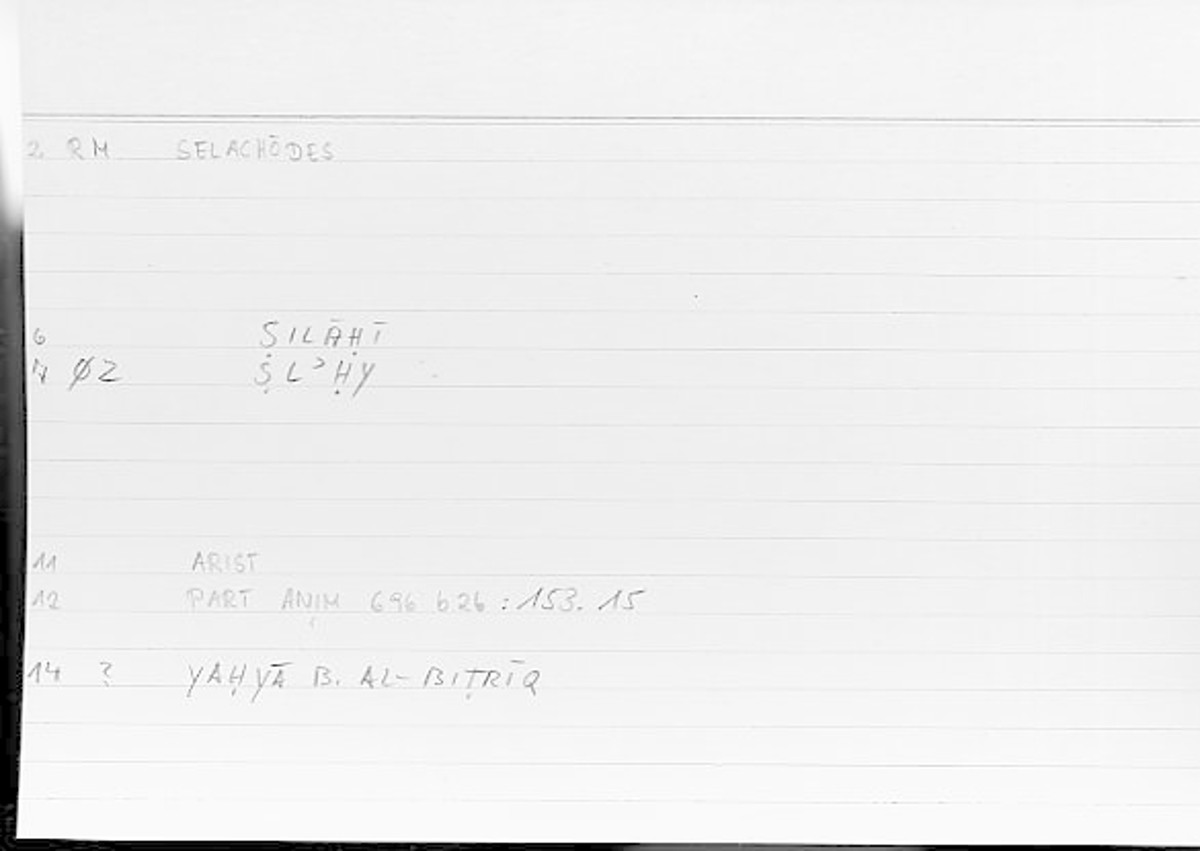 2 RM SELACHŌDES
6 ṢILĀḤĪ
7 ØZ ṢLʾḤY
11 ARIST
12 PART ANIM 696 b26 : 153. 15
14 ? YAḤYĀ B. AL-BIṬRĪQ